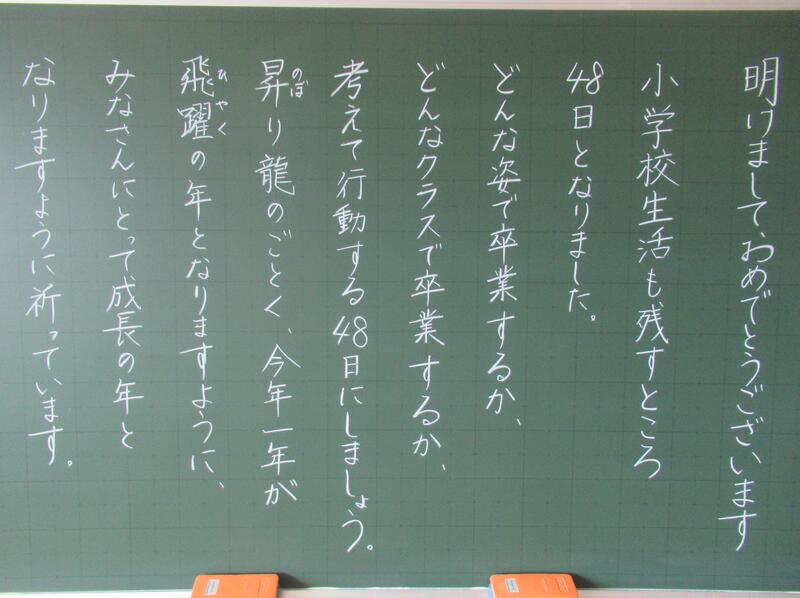 明けましておめでとうございます
小学校生活も残すところ
48日となりました。
どんな姿で卒業するか、
どんなクラスで卒業するか、
考えて行動する48日にしましょう。
昇り龍のごとく、今年一年が
のぼ
飛躍の年となりますように、
ひやく
みなさんにとって成長の年と
なりますように祈っています。